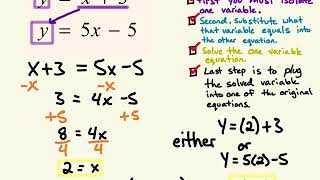 y = x + 3
y = 5x - 5
x+3 = 5x-5
-x -x
3 = 4x -5
+5 +5
8 = 4x
4 4
2 = x
First you must isolate
one variable.
Second, substitute what
that variable equals into
the other equation.
Solve the one variable
equation.
Last step is to plug
the solved variable
into one of the original
equations.
either
y=(2)+3
or
y=5(2)-5